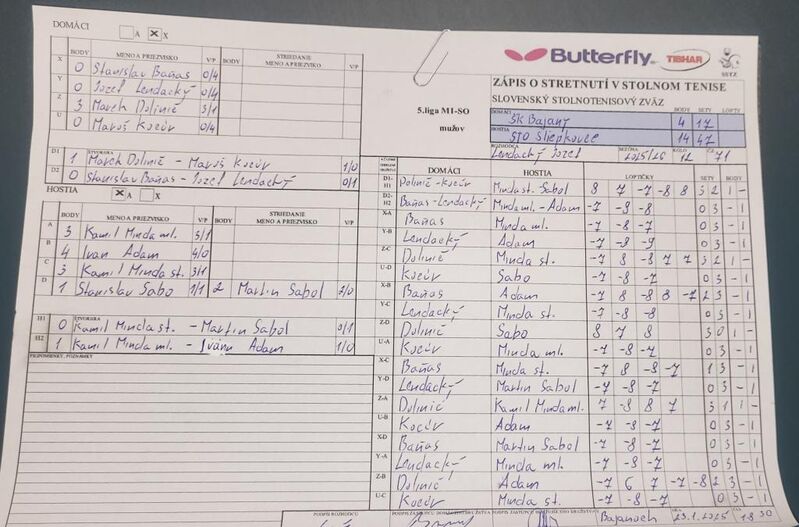 DOMÁCI A X
BODY MENO A PRIEZVISKO V/P BODY STRIEDANIE MENO A PRIEZVISKO V/P
X 0 Stanislav Baňas 0/4
Y 0 Jozef Lendacký 0/4
Z 3 March Dolinič 3/1
U 0 Maroš Kocúr 0/4
ŠTVORHRA
D1 1 March Dolinič - Maroš Kocúr 1/0
D2 0 Stanislav Baňas - Jozef Lendacký 0/1
HOSTIA A X
BODY MENO A PRIEZVISKO V/P BODY STRIEDANIE MENO A PRIEZVISKO V/P
A 3 Kamil Minda ml. 3/1
B 4 Ivan Adam 4/0
C 3 Kamil Minda st. 3/1
D 1 Stanislav Sabo 1/1 2 Martin Sabol 2/0
ŠTVORHRA
H1 0 Kamil Minda st. - Martin Sabol 0/1
H2 1 Kamil Minda ml. - Ivan Adam 1/0
PRIPOMIENKY, POZNÁMKY
Butterfly TIBHAR SSTZ
5.liga M1-SO
mužov
ZÁPIS O STRETNUTÍ V STOLNOM TENISE
SLOVENSKÝ STOLNOTENISOVÝ ZVÄZ
DOMÁCI BODY SETY LOPTY
ŠK Bajany 4 17
HOSTIA
STO Sliepkovce 14 47
ROZHODCA SEZÓNA KOLO
Lendacký Jozef 2025/26 12 71
DOMÁCI HOSTIA LOPTIČKY SETY BODY
D1-H1 Dolinič-Kocúr Minda st. Sabol 8 7 -7 -8 8 3 2 1 -
D2-H2 Baňas-Lendacký Minda ml.-Adam -7 -9 -8 0 3 - 1
X-A Baňas Minda ml. -7 -8 -7 0 3 - 1
Y-B Lendacký Adam -7 -8 -9 0 3 - 1
Z-C Dolinič Minda st. -7 8 -8 7 7 3 2 1 -
U-D Kocúr Sabo -7 -8 -7 0 3 - 1
X-B Baňas Adam -7 8 -8 8 -7 2 3 - 1
Y-C Lendacký Minda st. -7 -8 -8 0 3 - 1
Z-D Dolinič Sabo 8 7 8 3 0 1 -
U-A Kocúr Minda ml. -7 -8 -7 0 3 - 1
X-C Baňas Minda st. -7 8 -8 -7 1 3 - 1
Y-D Lendacký Martin Sabol -7 -8 -7 0 3 - 1
Z-A Dolinič Kamil Minda ml. 7 -8 8 7 3 1 1 -
U-B Kocúr Adam -7 -8 -7 0 3 - 1
X-D Baňas Martin Sabol -7 -8 -7 0 3 - 1
Y-A Lendacký Minda ml. -7 -8 -7 0 3 - 1
Z-B Dolinič Adam -7 6 7 -7 -8 2 3 - 1
U-C Kocúr Minda st. -7 -8 -7 0 3 - 1
PODPIS ROZHODCU
Bajanoch 23.1.2025 18 30